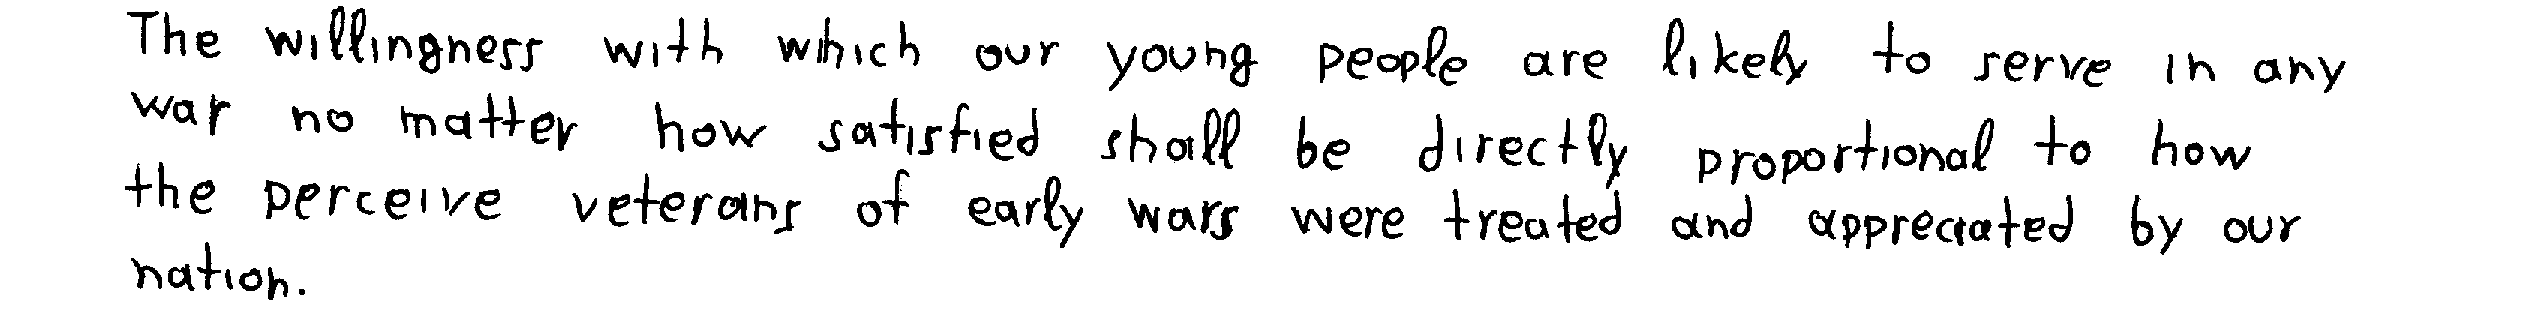 The willingness with which our young people are likely to serve in any
war no matter how satisfied shall be directly proportional to how
the perceive veterans of early wars were treated and appreciated by our
nation.